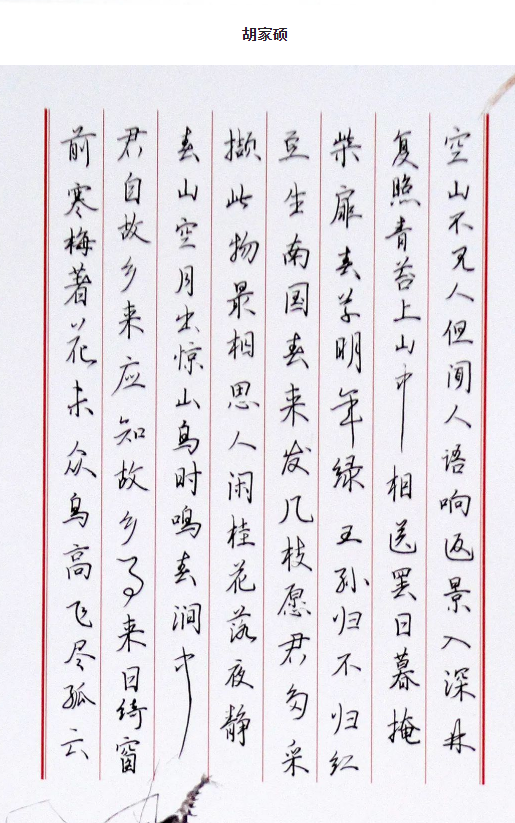 胡家硕
空山不见人但闻人语响返景入深林
复照青苔上山中相送罢日暮掩
柴扉春草明年绿王孙归不归红
豆生南国春来发几枝愿君多采
撷此物最相思人闲桂花落夜静
春山空月出惊山鸟时鸣春涧中
君自故乡来应知故乡事来日绮窗
前寒梅著花未众鸟高飞尽孤云